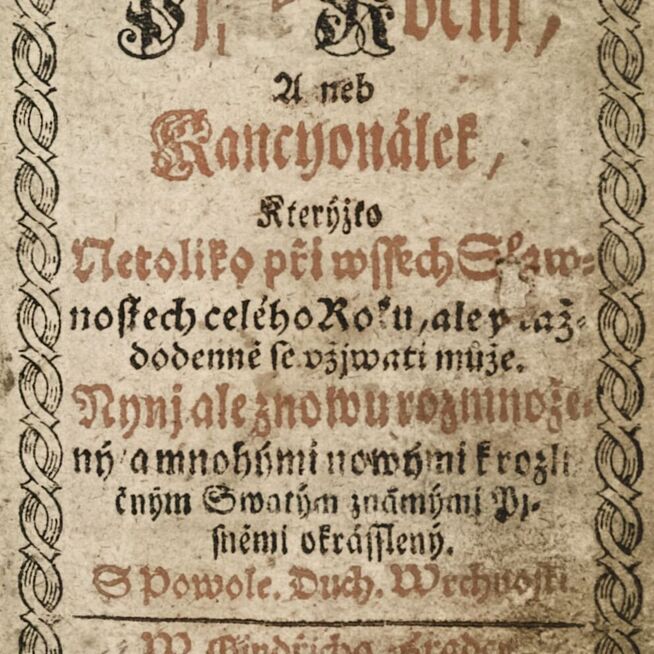 A neb
Kancyonálek,
Kterýžto
Netoliko při wssech Slaw-
nostech celého Roku, ale y každ-
dodenně se vžjwati může.
Nynj ale znowu rozmnože-
ný a mnohými nowými k rozli-
čným Swatým známými Pj-
sněmi okrásslený.
S Powole. Duch. Wrchnosti.
W Gindřicho. Hradcy